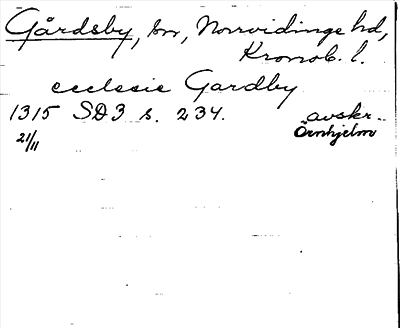 Gårdsby, sn, Norrvidinge hd,
Kronob. l.
ecclesie Gardby
1315 SD3 s. 234. avskr.
21/11 Örnhjelm